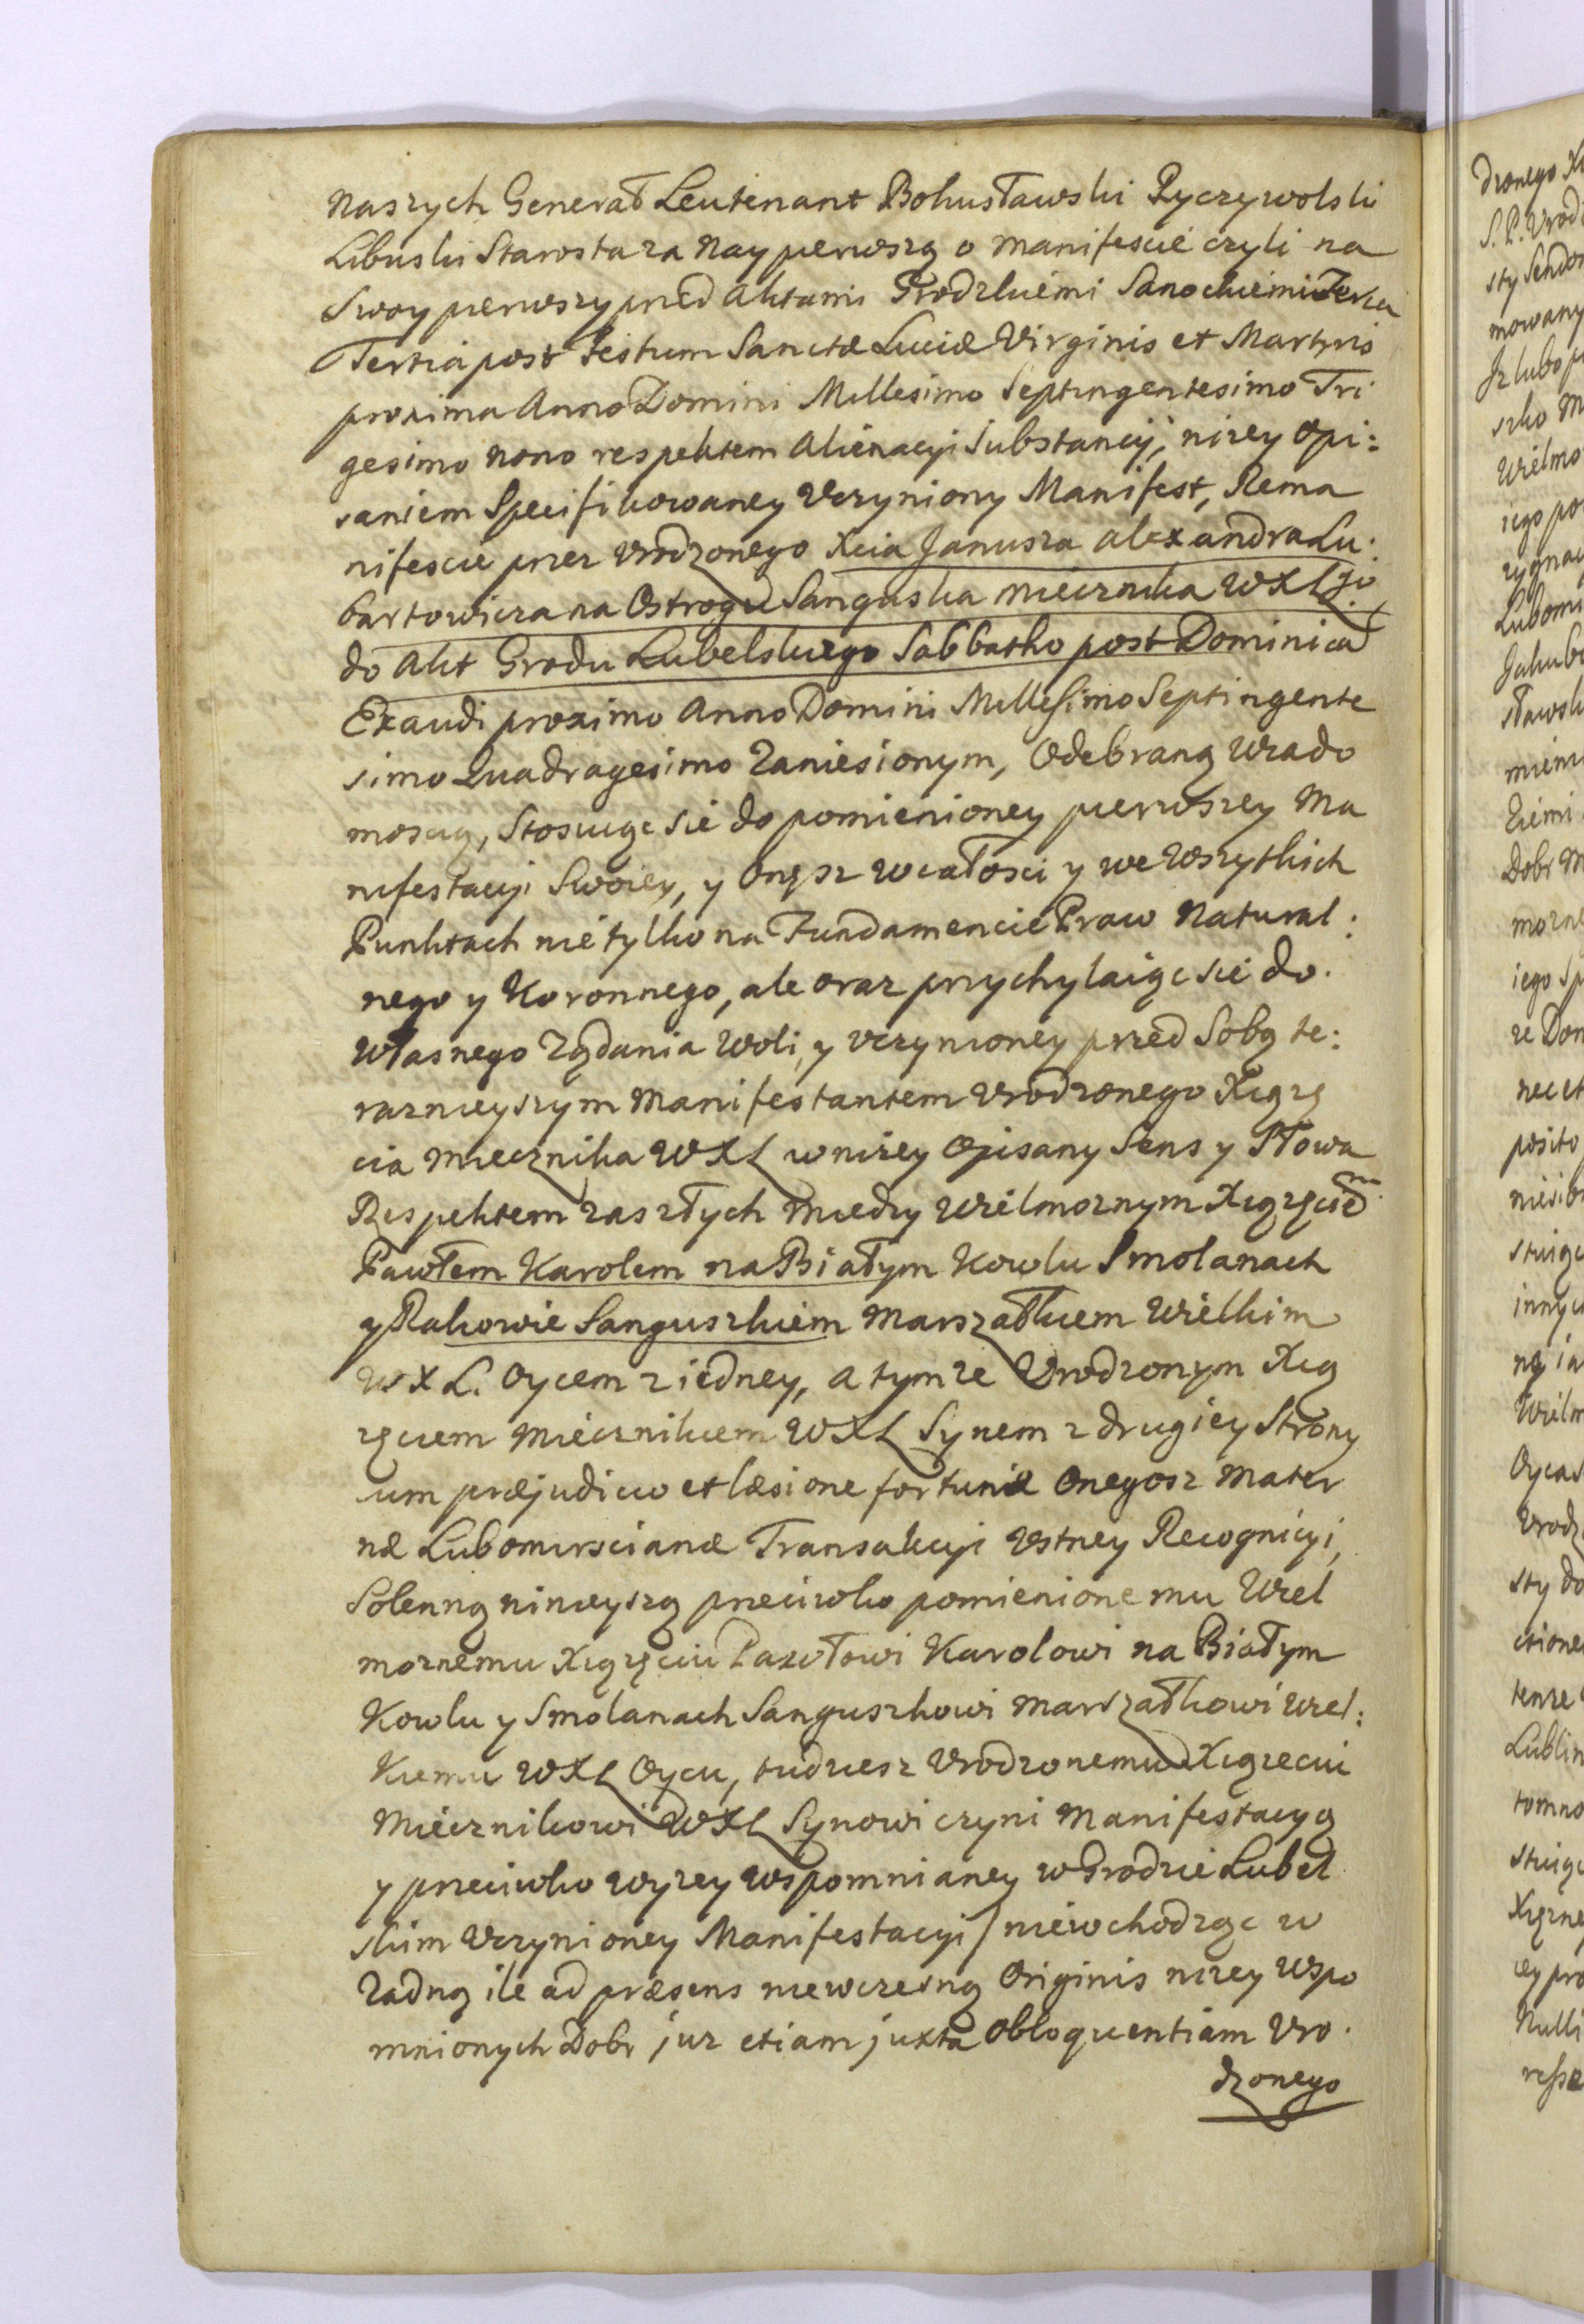 Naszych Generał Leutenant Bohusławski Ryczywolski
Libuski Starosta za Nay pierwszą o manifescie czyli na
Swoy pierwszy przed Aktami Grodzkiemi Sanockiemi Feria
Tertia post Festum Sanctæ Luciæ Virginis et Martyris
proxima Anno Domini Millesimo Septingentesimo Tri
gesimo nono respektem Alienacyi Substancij, niżey Opi:
saniem Specifikowaney Uczyniony Manifest, Rema
nifescie przez Urodzonego Xcia Janusza Alexandra Lu:
bartowicza na Ostrogu Sanguska Miecznika WXLgo
do Akt Grodu Lubelskiego Sabbatho post Dominica
Exaudi proximo Anno Domini Millesimo Septingente
simo Quadragesimo Zaniesionym, Odebraną Wiado
moscią, Stosuiąc sie do pomienioney pierwszey Ma
nifestacyi Swoiey, y Onęsz w całosci y we Wszytkich
Punktach nie tylko na Fundamencie Praw Natural:
nego y Koronnego, ale oraz przychylaiąc sie do
Własnego Ządania Woli, y uczynioney przed Sobą te:
raznieyszym Manifestantem Urodzonego Xiązę
cia Miecznika WXL w niżey Opisany Sens y Słowa
Respektem zaszłych między Wielmoznym Xiązęciem
Pawłem Karolem na Białym Kowlu Smolanach
y Rakowie Sanguszkiem Marszałkiem Wielkim
WXL. Oycem z iedney, a tymze Urodzonym Xią
zęciem Miecznikiem WXL Synem z drugiey Strony
cum præjudicio et læsione fortunæ Onegosz Mater
næ Lubomirscianæ Transakcyi Ustney Recognicyi,
Solenną ninieyszą przeciwko pomienionemu Wiel
moznemu Xiązęciu Pawłowi Karolowi na Białym
Kowlu y Smolanach Sanguszkowi Marszałkowi Wiel:
Kiemu WXL Oycu, tudziesz Urodzonemu Xiązeciu
Miecznikowi WXL Synowi czyni Manifestacyą
y przeciwko wyzey Wspomnianey w Grodzie Lubel
skim Uczynioney Manifestacyi / niewchodząc w
Zadną ile ad præsens niewczesną Originis niżey Wspo
mnionych Dobr juz etiam juxta Obloquentiam Uro
dzonego